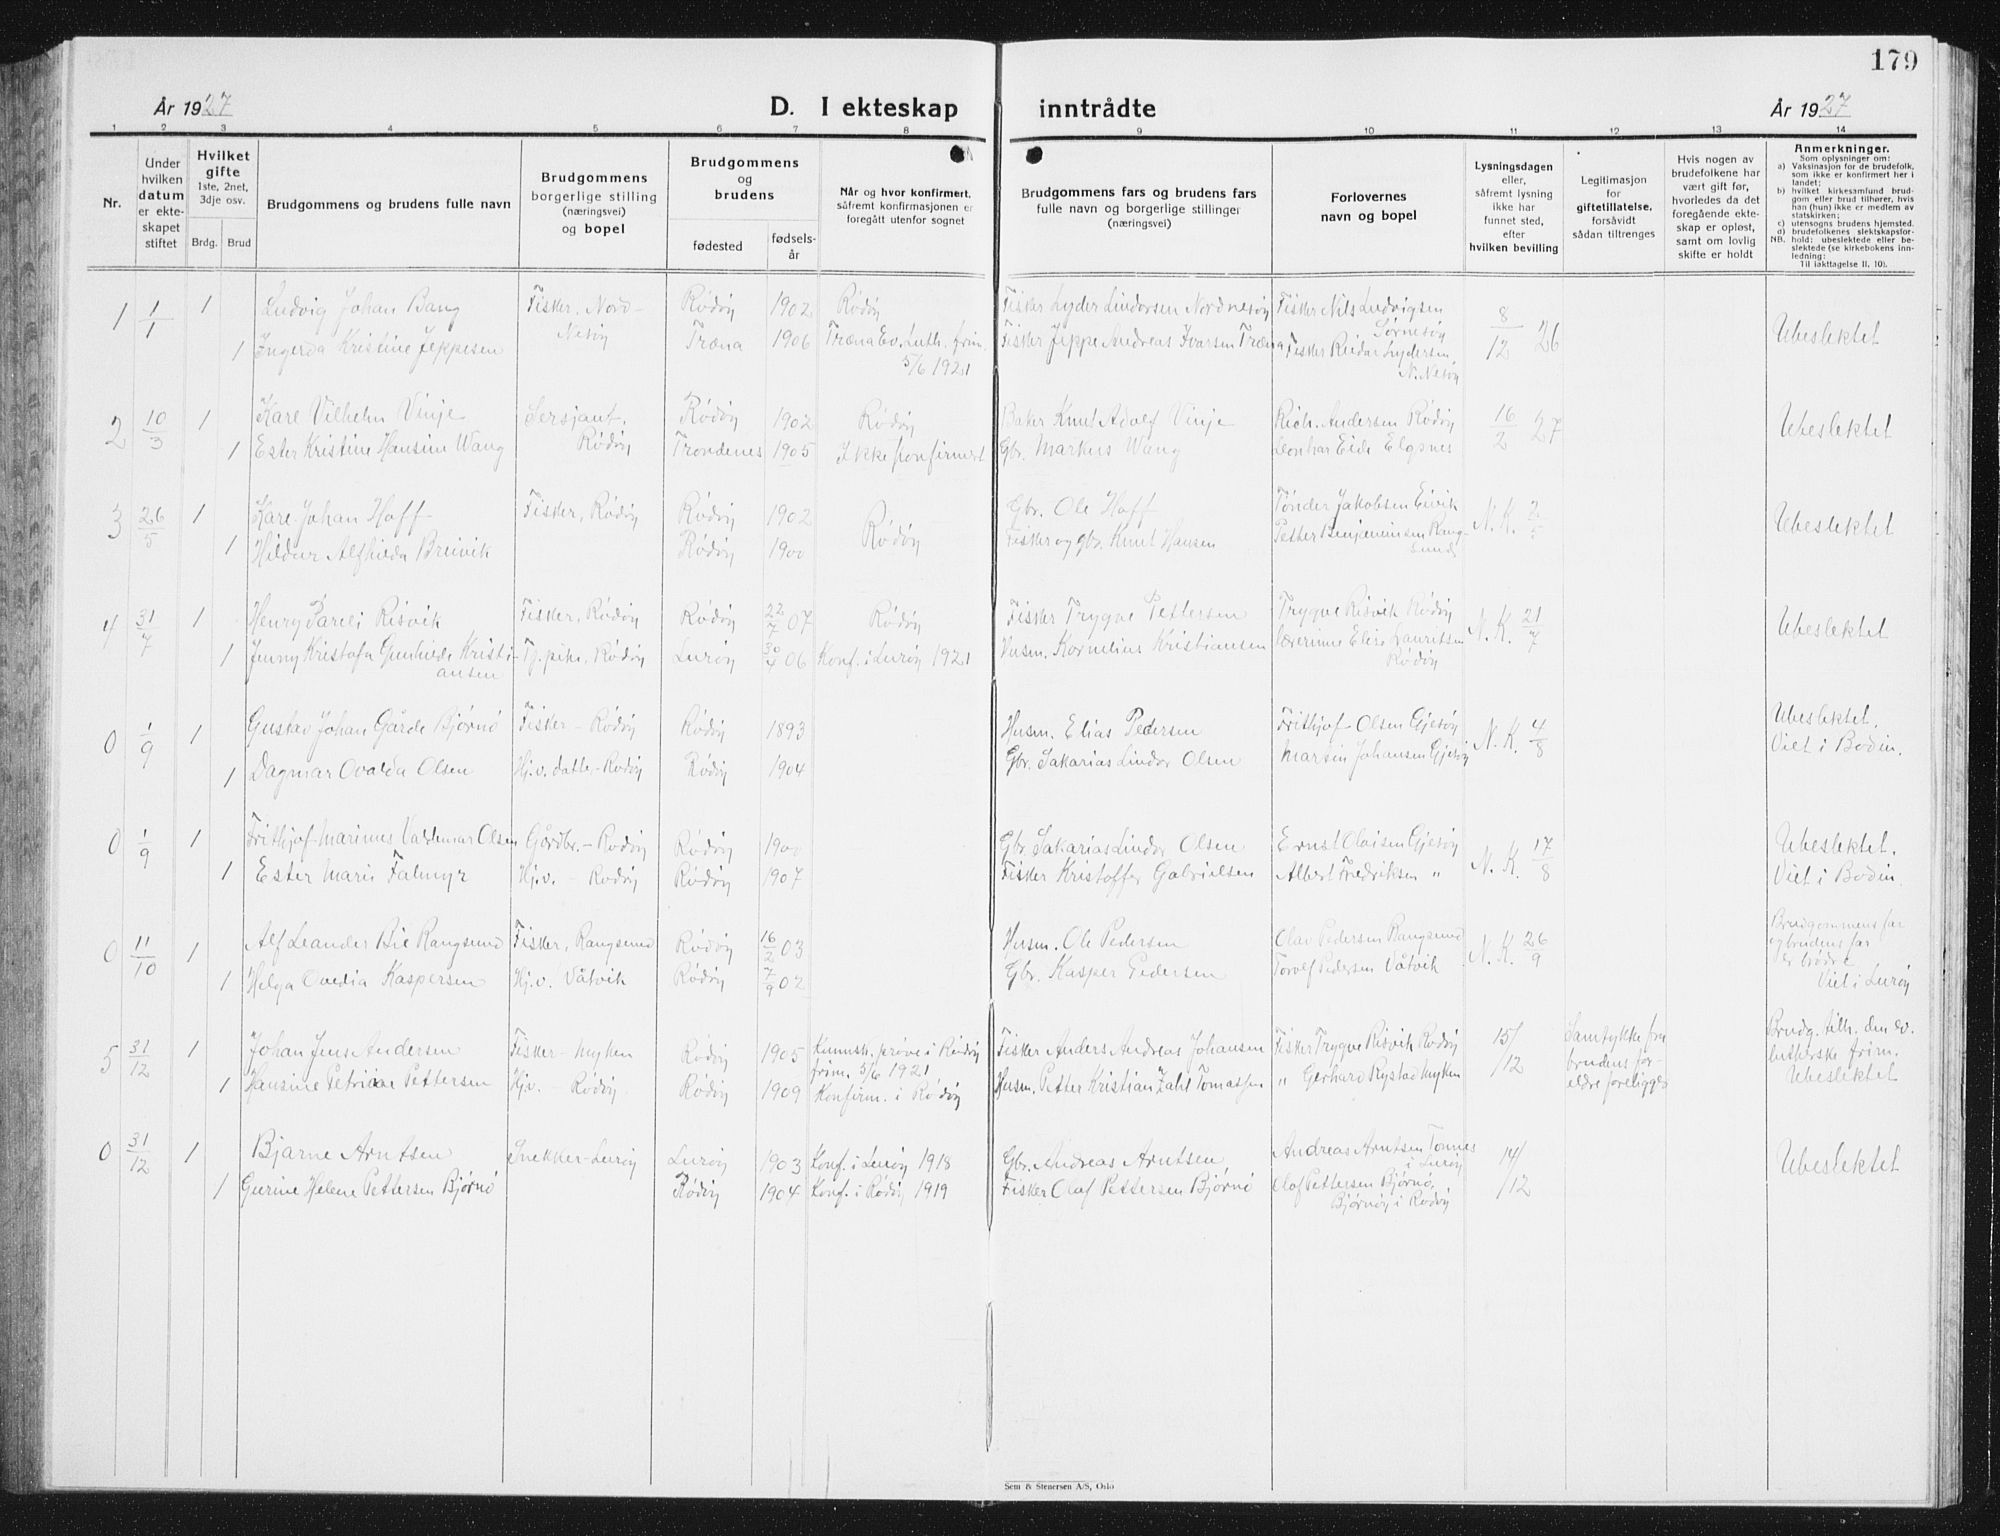 179
År 1927
D. I ekteskap inntrådte
År 1927
1 2 3 4 5 6 7 8 9 10 11 12 13 14
Nr.
Under hvilken datum er ekteskapet stiftet
Hvilket gifte 1ste, 2net, 3dje osv.
Brdg. Brud
Brudgommens og brudens fulle navn
Brudgommens borgerlige stilling (næringsvei) og bopel
Brudgommens og brudens
fødested
fødselsår
Når og hvor konfirmert, såfremt konfirmasjonen er foregått utenfor sognet
Brudgommens fars og brudens fars fulle navn og borgerlige stillinger (næringsvei)
Forlovernes navn og bopel
Lysningsdagen eller, såfremt lysning ikke har funnet sted, efter hvilken bevilling
Legitimasjon for giftetillatelse, forsåvidt sådan tiltrenges
Hvis nogen av brudefolkene har vært gift før, hvorledes da det foregående ekteskap er opløst, samt om lovlig skifte er holdt
Anmerkninger.
Som oplysninger om:
a) Vaksinasjon for de brudefolk, som ikke er konfirmert her i landet;
b) hvilket kirkesamfund brudgom eller brud tilhører, hvis han (hun) ikke er medlem av statskirken;
c) utensogns brudens hjemsted.
d) brudefolkenes slektskapsforhold: ubeslektede eller beslektede (se kirkebokens innledning:
NB. Til iakttagelse II. 10).
1 1/1 1 Ludvig Johan Bang Fisker, Nord-Nesøy Rødøy 1902 Rødøy Fisker Lyder Lindorsen Nordnesøy Fisker Nils Ludvigsen Sørnesøy 8/12 26 Ubeslektet
1 Ingerda Kristine Jeppesen Træna 1906 Træna Ev. Luth. frim. 5/6 1921 Fisker Jeppe Andreas Ivarsen Træna Fisker Reidar Lydersen, N. Nesøy
2 10/3 1 Kare Vilhelm Vinje Sersjant, Rødøy Rødøy 1902 Rødøy Baker Knut Adolf Vinje Rich. Andersen Rødøy 16/2 27 Ubeslektet
1 Ester Kristine Hansine Wang Trondenes 1905 Ikke konfirmert Gbr. Markus Wang Leonhar Eide Elgsnes
3 26/5 1 Kare Johan Hoff Fisker, Rødøy Rødøy 1902 Rødøy Gbr. Ole Hoff Tønder Jakobsen Eivik N. K. 2/5 Ubeslektet
1 Hildur Alfhilda Breivik Rødøy 1900 Fisker og gbr. Knut Hansen Petter Benjaminsen Rangsund
4 31/7 1 Henry Pareli Risvik Fisker, Rødøy Rødøy 22/7 07 Rødøy Fisker Trygve Pettersen Trygve Risvik Rødøy N. K. 21/7 Ubeslektet
1 Jenny Kristofa Gunhilde Kristiansen Tj. pike, Rødøy Lurøy 30/4 06 Konf. i Lurøy 1921 Husm. Kornelius Kristiansen Lauritsen Rødøy
0 1/9 1 Gustav Johan Gårde Bjørnø Fisker - Rødøy Rødøy 1893 Husm. Elias Pedersen Frithjof Olsen Gjesøy N. K. 4/8 Ubeslektet. Viet i Bodin.
1 Dagmar Ovalda Olsen Hj.v. datter - Rødøy Rødøy 1904 Gbr. Sakarias Lindor Olsen Martin Johansen Gjesøy
0 1/9 1 Frithjof Marinus Valdemar Olsen Gårdbr. - Rødøy Rødøy 1900 Gbr. Sakarias Lindor Olsen Ernst Olaisen Gjesøy N. K. 17/8 Ubeslektet. Viet i Bodin.
1 Ester Marie Falmyr Hj.v. - Rødøy Rødøy 1907 Fisker Kristoffer Gabrielsen Albert Fredriksen "
0 11/10 1 Alf Leander Bie Rangsund Fisker, Rangsund Rødøy 16/2 03 Husm. Ole Pedersen Olav Pedersen Rangsund N. K. 26/9 Brudgommens far og brudens far er brødre Viet i Lurøy
1 Helga Ovedia Kaspersen Hj.v. Våtvik Rødøy 7/9 02 Gbr. Kasper Pedersen Torolf Pedersen Våtvik
5 31/12 1 Johan Jens Andersen Fisker - Myken Rødøy 1905 Kunnsk. prøve i Rødøy frim. 5/6 1921 Fisker Anders Andreas Johansen Fisker Trygve Risvik Rødøy 15/12 Samtykke fra brudens foreldre foreligger Brudg. tilh. den ev. lutherske frim. Ubeslektet
1 Hansine Petrine Pettersen Hj.v. - Rødøy Rødøy 1909 Konfirm. i Rødøy Husm. Petter Kristian Zahl Tomassen " Gerhard Rystad Myken
0 31/12 1 Bjarne Arntsen Snekker - Lurøy Lurøy 1903 Konf. i Lurøy 1918 Gbr. Andreas Arntsen Andreas Arntsen Tonnes i Lurøy 14/12 Ubeslektet
1 Gurine Helene Pettersen Bjørnø Rødøy 1904 Konf. i Rødøy 1919 Fisker Olaf Pettersen Bjørnø Olaf Pettersen Bjørnø, Bjørnøy i Rødøy
Sem & Stenersen A/S, Oslo